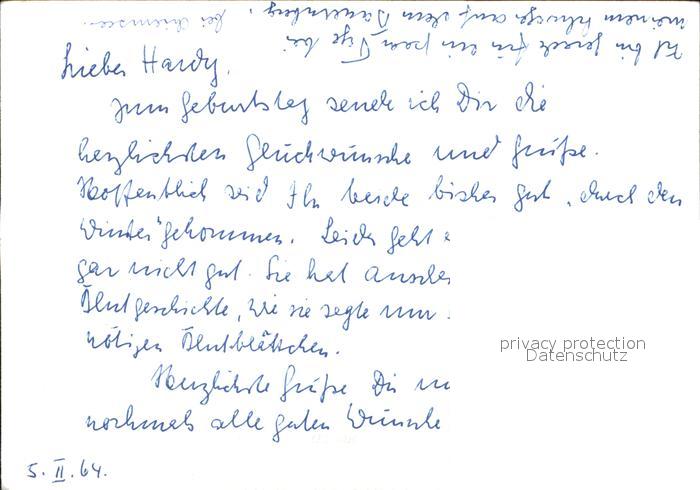 Lieber Hardy,
zum Geburtstag sende ich Dir die
herzlichsten Glückwünsche und Grüße.
Hoffentlich seid Ihr beide bisher gut "durch den
Winter" gekommen. Leider geht
gar nicht gut. Sie hat
Blutgeschichte, wie sie sagte nun
nötigen Blutblättchen.
Herzlichste Grüße Dir
nochmals alle guten Wünsche
5. II. 64.
Ich bin gerade für ein paar Tage bei
meinem Schwager auf dem
bei Chiemsee.
privacy protection
Datenschutz